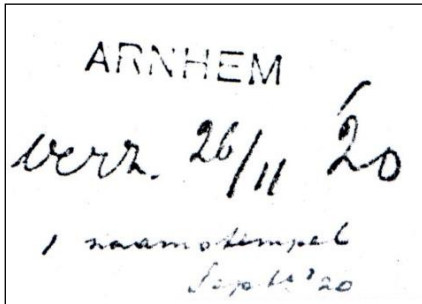 ARNHEM
verz. 26/11 '20
1 naamstempel
Sept '20